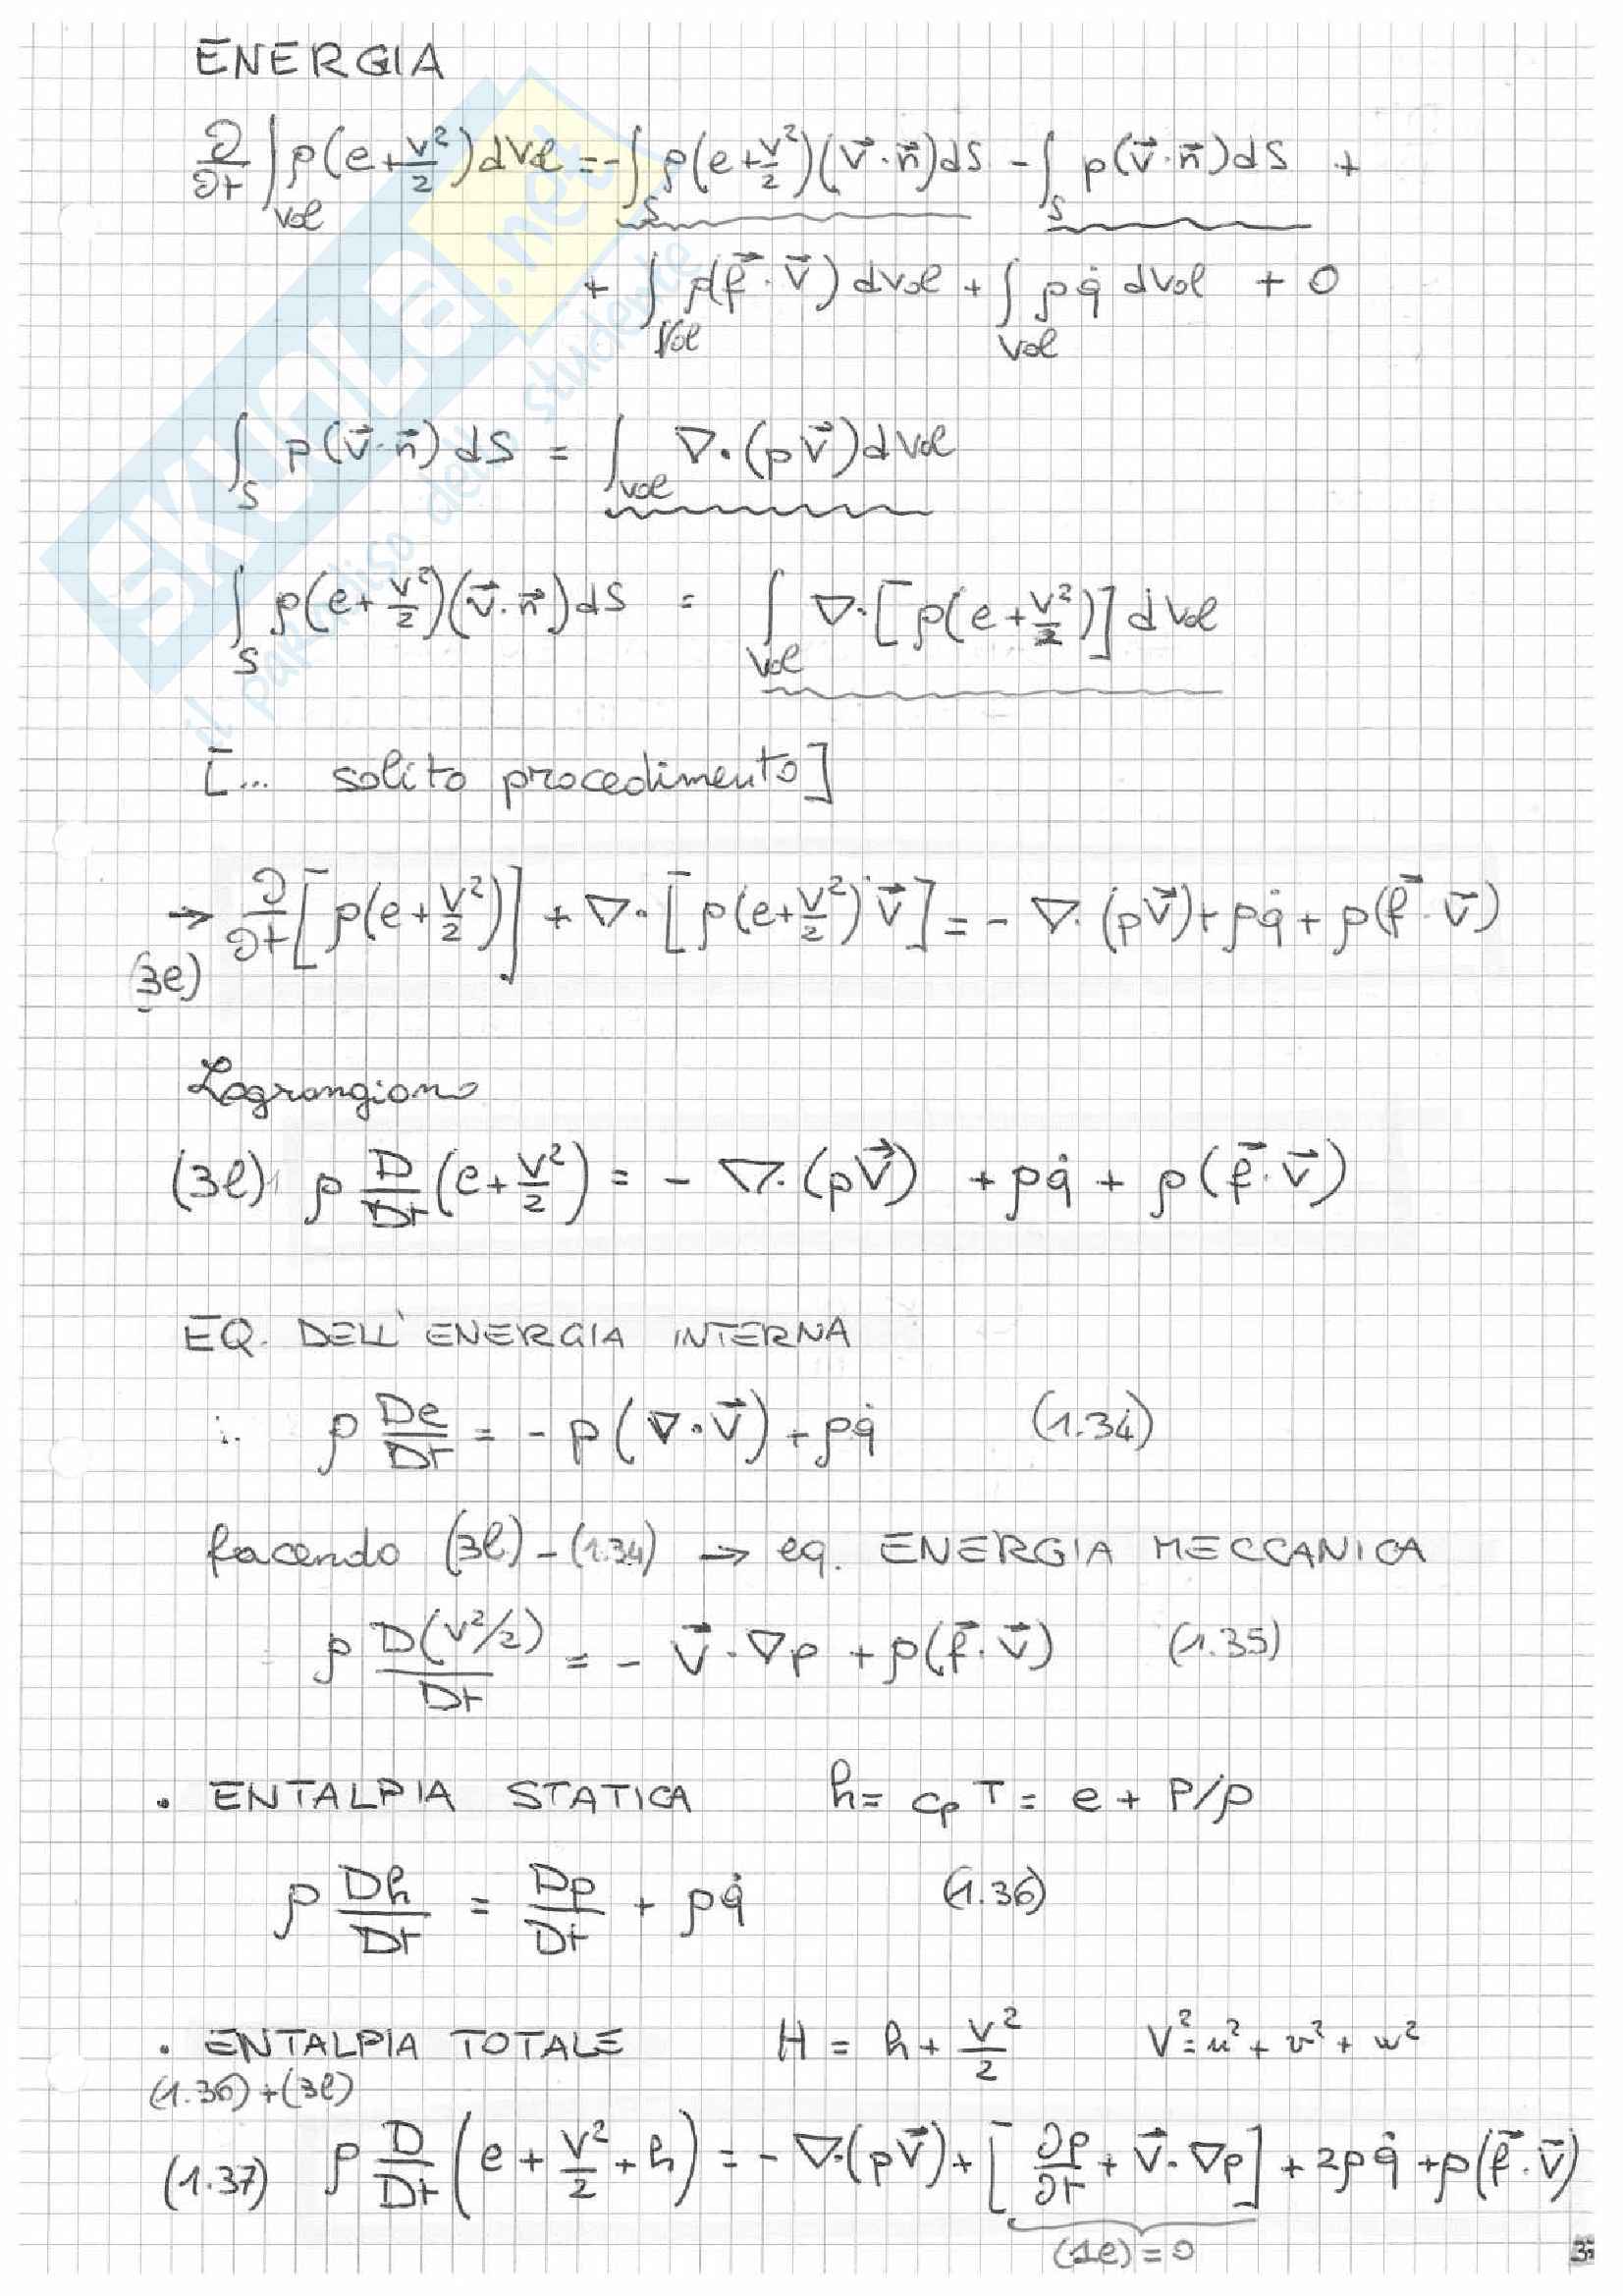 ENERGIA
∂/∂t ∫Vol ρ(e+V²/2)dVol = -∫S ρ(e+V²/2)(V⃗·n⃗)dS - ∫S p(V⃗·n⃗)dS +
+ ∫Vol ρ(f⃗·V⃗)dVol + ∫Vol ρq̇ dVol + 0
∫S p(V⃗·n⃗)dS = ∫Vol ∇·(pV⃗)dVol
∫S ρ(e+V²/2)(V⃗·n⃗)dS = ∫Vol ∇·[ρ(e+V²/2)]dVol
[... solito procedimento]
→ ∂/∂t[ρ(e+V²/2)] + ∇·[ρ(e+V²/2)V⃗] = -∇·(pV⃗) + ρq̇ + ρ(f⃗·V⃗)
(3e)
Lagrangiano
(3l) ρ D/Dt(e+V²/2) = -∇·(pV⃗) + ρq̇ + ρ(f⃗·V⃗)
EQ. DELL'ENERGIA INTERNA
∴ ρ De/Dt = -p(∇·V⃗) + ρq̇ (1.34)
facendo (3l) - (1.34) → eq. ENERGIA MECCANICA
ρ D(V²/2)/Dt = -V⃗·∇p + ρ(f⃗·V⃗) (1.35)
• ENTALPIA STATICA h = cp T = e + P/ρ
ρ Dh/Dt = Dp/Dt + ρq̇ (1.36)
• ENTALPIA TOTALE H = h + V²/2 V² = u² + v² + w²
(1.36)+(3l)
(1.37) ρ D/Dt(e + V²/2 + h) = -∇·(pV⃗) + [∂p/∂t + V⃗·∇p] + 2ρq̇ + ρ(f⃗·V⃗)
(1e) = 0
SKUOLA.net
il paradiso dello studente